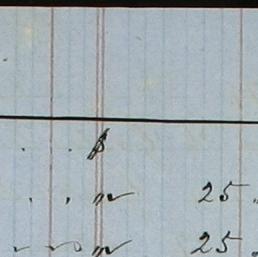 $
" 25
" 25